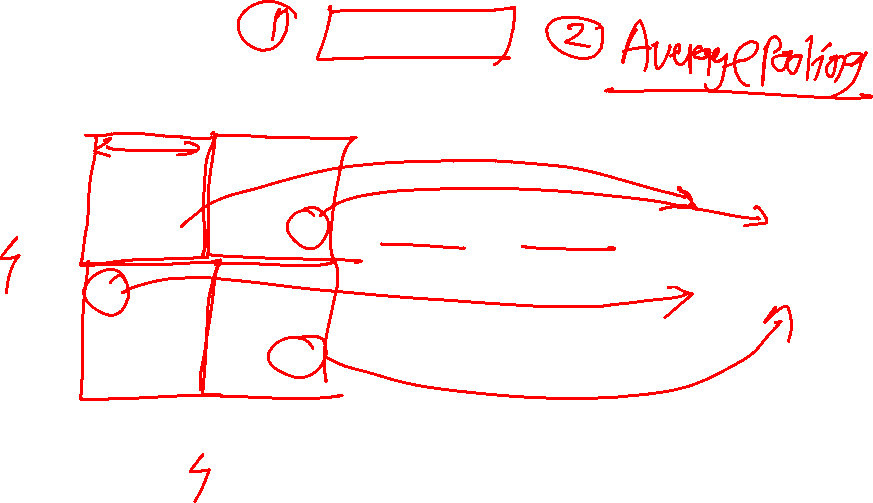 1 2 Average Pooling
4
4